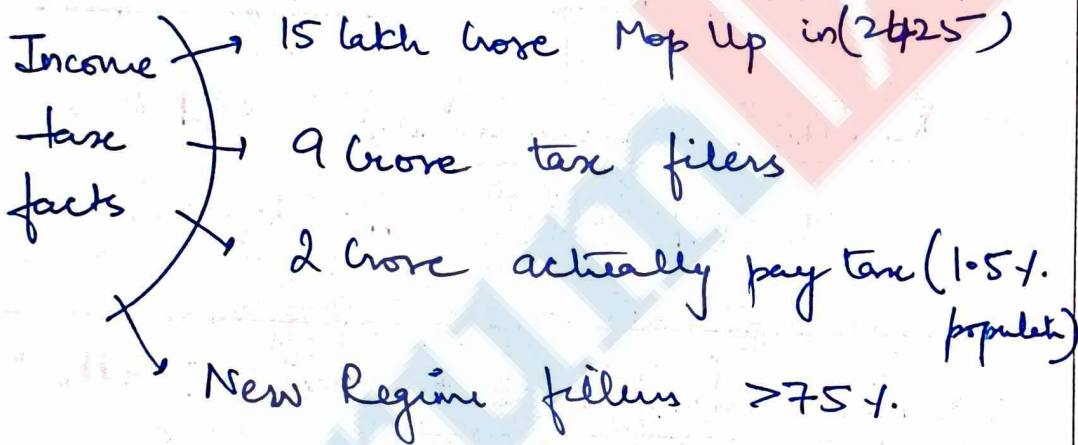 Income tax facts
15 lakh Crore Mop Up in (2425)
9 Crore tax filers
2 Crore actually pay tax (1.5%. populatn)
New Regime fillers >75%.